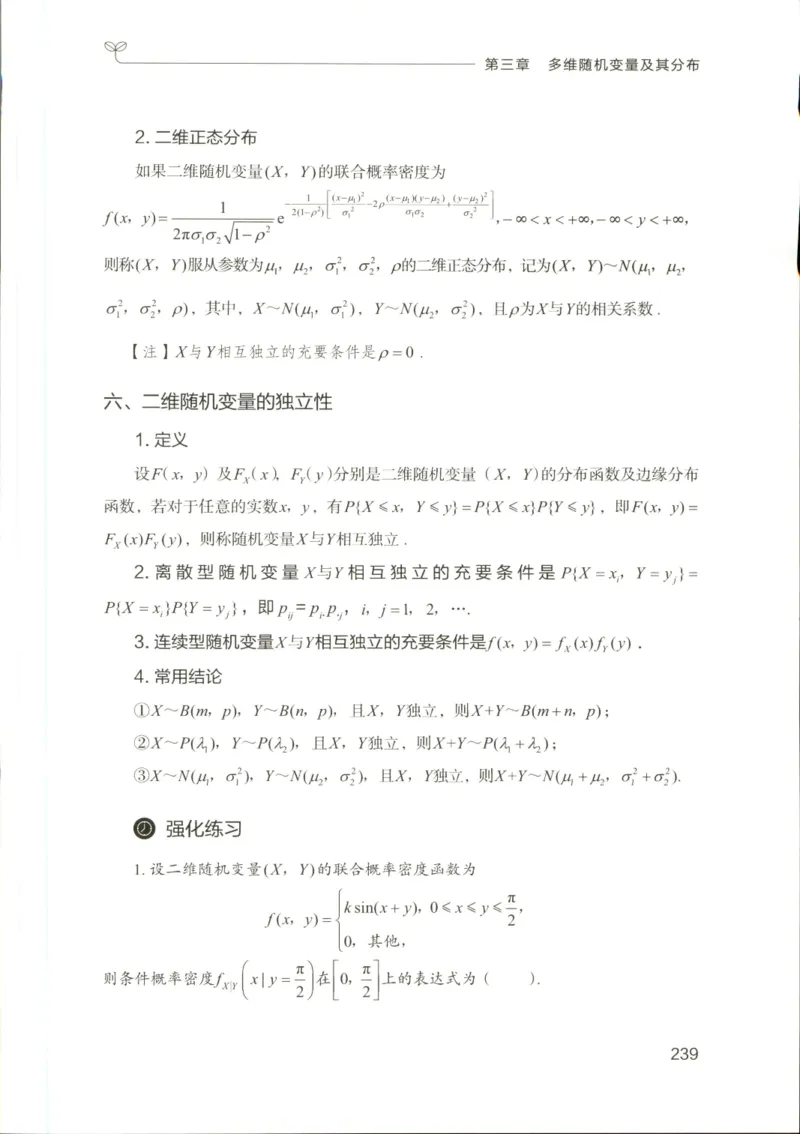 第三章 多维随机变量及其分布
2. 二维正态分布
如果二维随机变量(X, Y)的联合概率密度为
f(x, y)= \frac{1}{2πσ_1σ_2\sqrt{1-ρ^2}} e^{-\frac{1}{2(1-ρ^2)}\left[\frac{(x-μ_1)^2}{σ_1^2}-2ρ\frac{(x-μ_1)(y-μ_2)}{σ_1σ_2}+\frac{(y-μ_2)^2}{σ_2^2}\right]}, -∞<x<+∞, -∞<y<+∞,
则称(X, Y)服从参数为μ_1, μ_2, σ_1^2, σ_2^2, ρ的二维正态分布, 记为(X, Y)~N(μ_1, μ_2,
σ_1^2, σ_2^2, ρ), 其中, X~N(μ_1, σ_1^2), Y~N(μ_2, σ_2^2), 且ρ为X与Y的相关系数.
【注】X与Y相互独立的充要条件是ρ=0.
六、二维随机变量的独立性
1. 定义
设F(x, y)及F_X(x), F_Y(y)分别是二维随机变量(X, Y)的分布函数及边缘分布
函数, 若对于任意的实数x, y, 有P{X⩽x, Y⩽y}=P{X⩽x}P{Y⩽y}, 即F(x, y)=
F_X(x)F_Y(y), 则称随机变量X与Y相互独立.
2. 离散型随机变量X与Y相互独立的充要条件是P{X=x_i, Y=y_j}=
P{X=x_i}P{Y=y_j}, 即p_{ij}=p_{i·}p_{·j}, i, j=1, 2, ….
3. 连续型随机变量X与Y相互独立的充要条件是f(x, y)=f_X(x)f_Y(y).
4. 常用结论
①X~B(m, p), Y~B(n, p), 且X, Y独立, 则X+Y~B(m+n, p);
②X~P(λ_1), Y~P(λ_2), 且X, Y独立, 则X+Y~P(λ_1+λ_2);
③X~N(μ_1, σ_1^2), Y~N(μ_2, σ_2^2), 且X, Y独立, 则X+Y~N(μ_1+μ_2, σ_1^2+σ_2^2).
强化练习
1. 设二维随机变量(X, Y)的联合概率密度函数为
f(x, y)=\begin{cases} k\sin(x+y), 0⩽x⩽y⩽\frac{π}{2}, \\ 0, 其他, \end{cases}
则条件概率密度f_{X|Y}\left(x|y=\frac{π}{2}\right)在\left[0, \frac{π}{2}\right]上的表达式为( ).
239